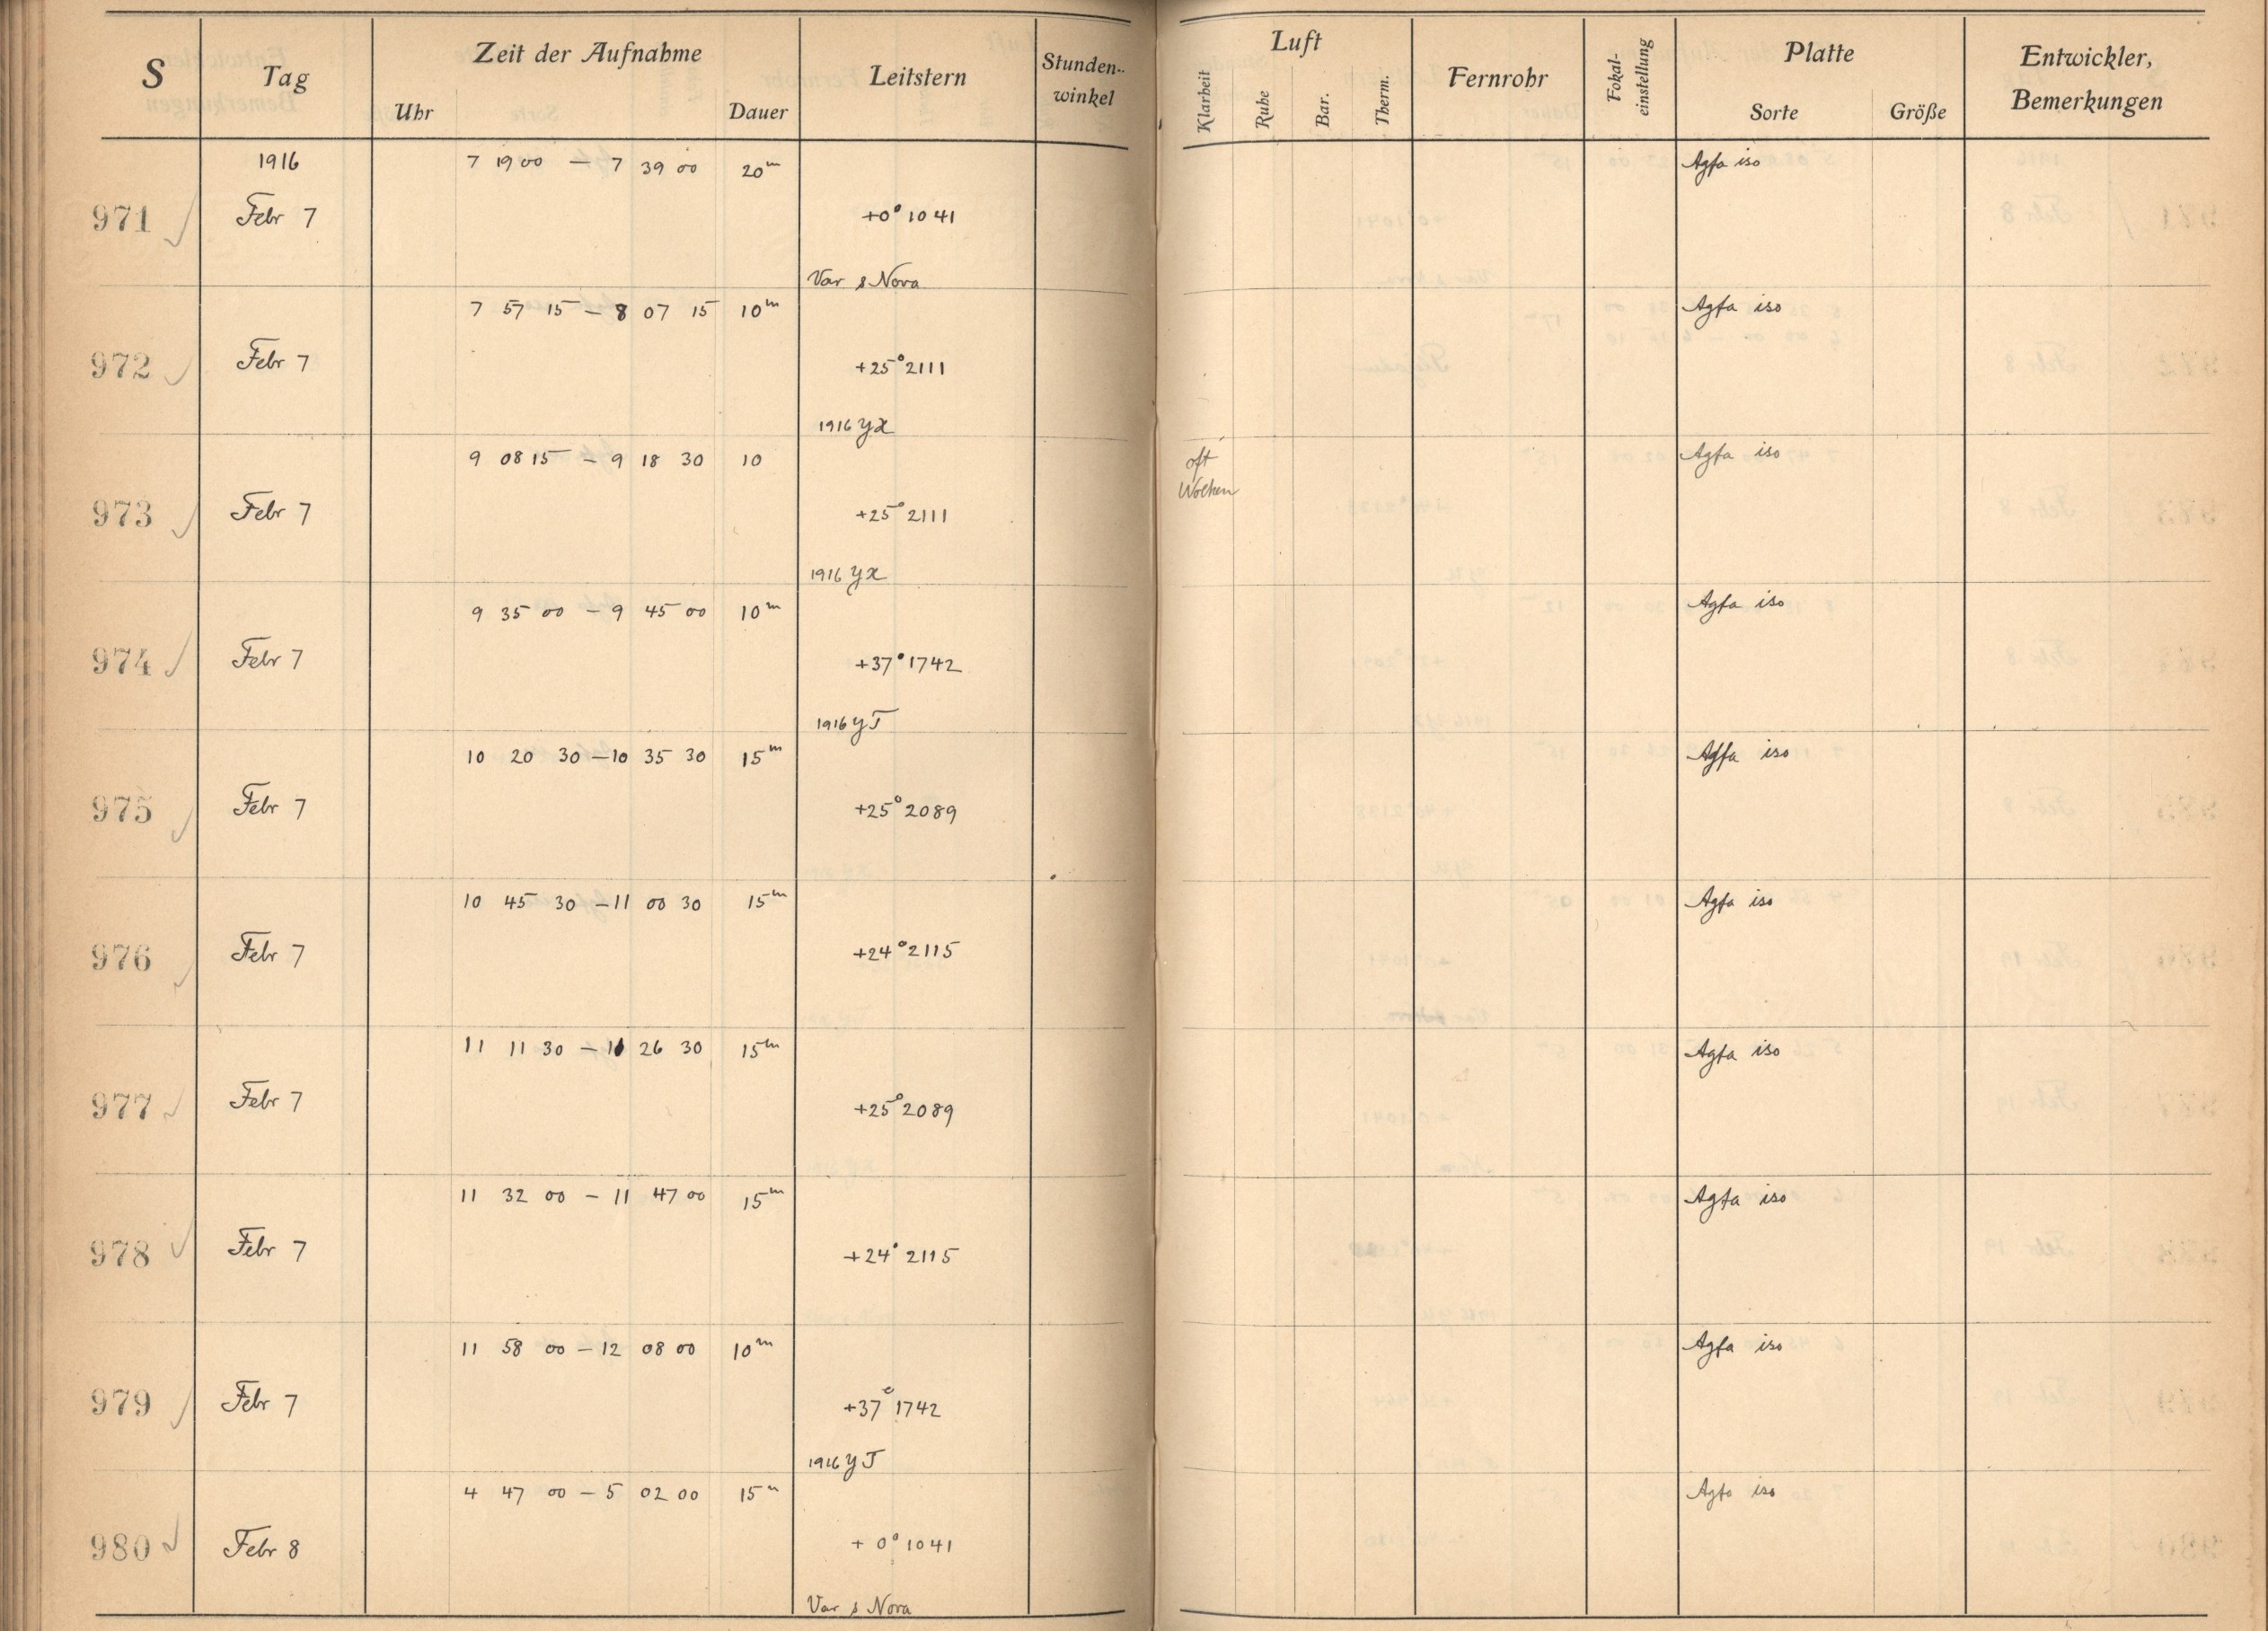 S Tag Zeit der Aufnahme Uhr Dauer Leitstern Stunden-winkel Luft Klarheit Ruhe Bar. Therm. Fernrohr Fokal-einstellung Platte Sorte Größe Entwickler, Bemerkungen
1916 7 19 00 — 7 39 00 20m Agfa iso
971 Febr 7 +0° 1041
Var s Nova
7 57 15 — 8 07 15 10m Agfa iso
972 Febr 7 +25° 2111
1916 yx
9 08 15 — 9 18 30 10 oft Wolken Agfa iso
973 Febr 7 +25° 2111
1916 yx
9 35 00 — 9 45 00 10m Agfa iso
974 Febr 7 +37° 1742
1916 y J
10 20 30 — 10 35 30 15m Agfa iso
975 Febr 7 +25° 2089
10 45 30 — 11 00 30 15m Agfa iso
976 Febr 7 +24° 2115
11 11 30 — 11 26 30 15m Agfa iso
977 Febr 7 +25° 2089
11 32 00 — 11 47 00 15m Agfa iso
978 Febr 7 +24° 2115
11 58 00 — 12 08 00 10m Agfa iso
979 Febr 7 +37° 1742
1916 y J
4 47 00 — 5 02 00 15m Agfa iso
980 Febr 8 + 0° 1041
Var s Nova